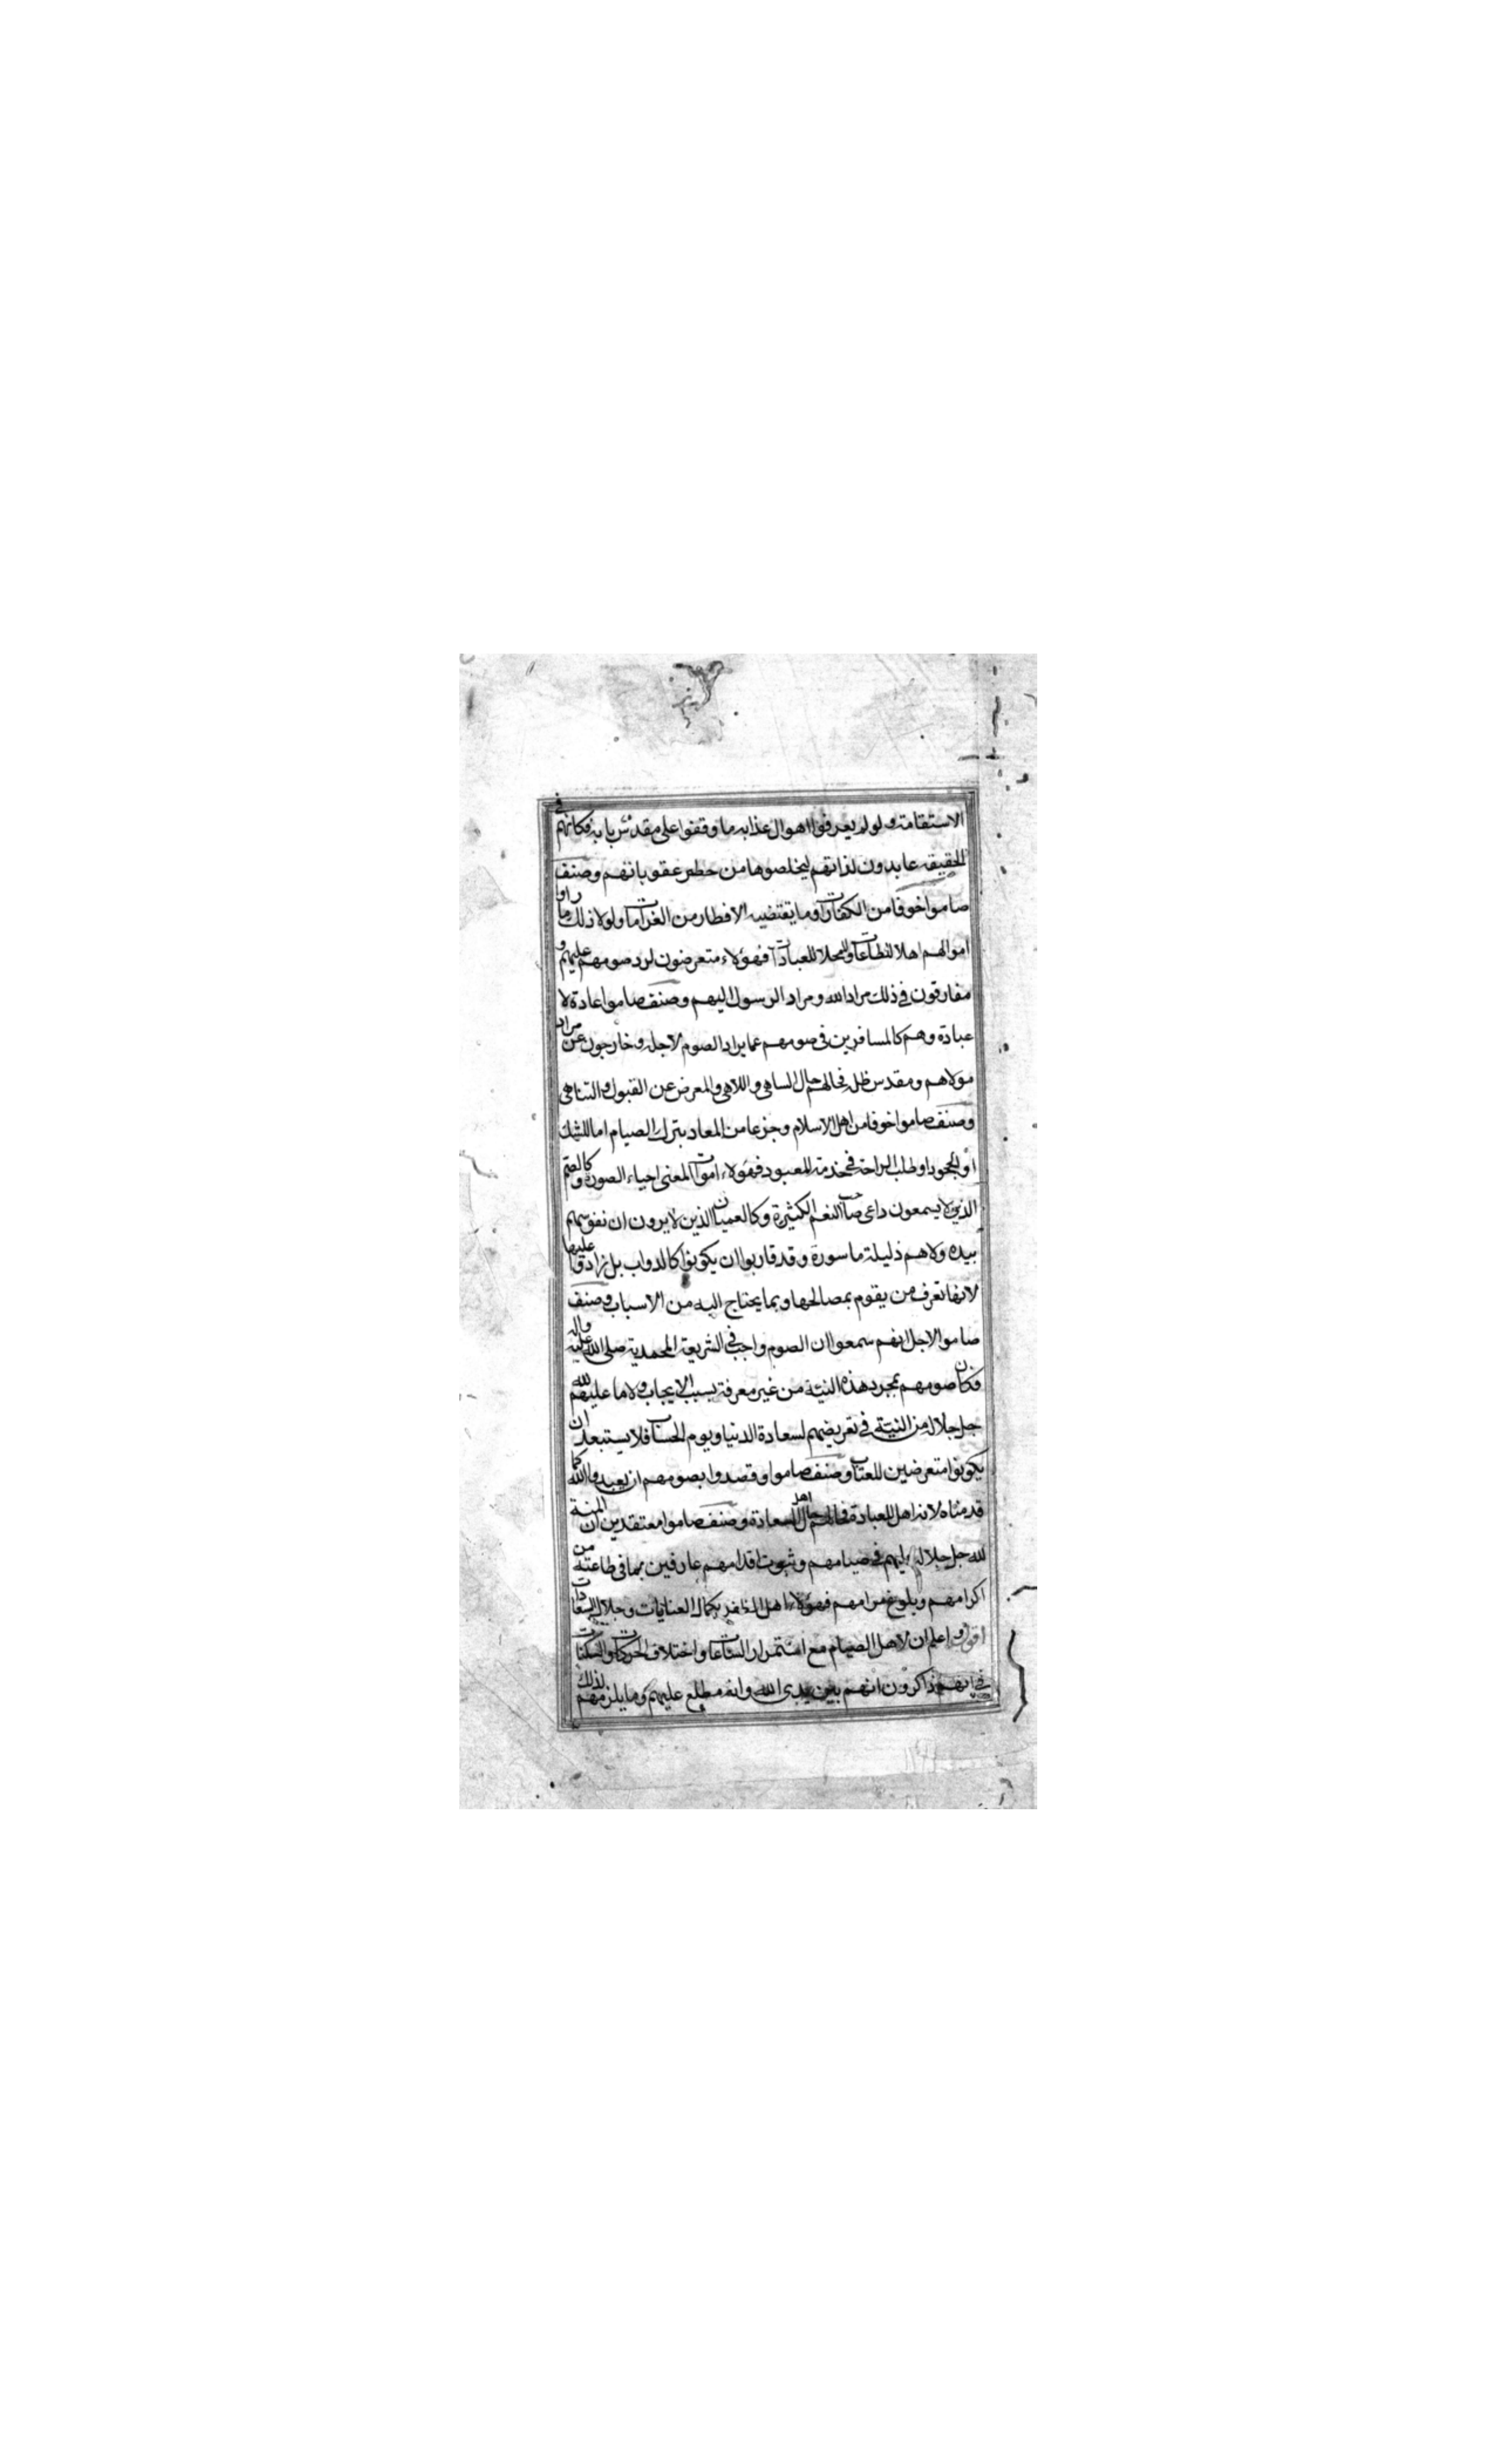 الاستقامة ولو لم يعرفوا اهوال عذابه ما وقفوا على مقدس بابه فكانهم في
الحقيقه عابدون لذاتهم ليخلصوها من خطر عقوباتهم وصنف
صاموا خوفا من الكفارات وما يقتضيه الافطار من الغرامات ولولا ذلك ما راوا
اموالهم اهلا للطاعات ولا محلا للعبادات فهؤلاء متعرضون لرد صومهم عليهم و
مفارقون في ذلك مراد الله ومراد الرسول اليهم وصنف صاموا عادة لا
عبادة وهم كالمسافرين في صومهم عما يراد الصوم لاجله وخارجون عن مراد
مولاهم ومقدس ظله فحالهم حال الساهي واللاهي والمعرض عن القبول والتناهي
وصنف صاموا خوفا من اهل الاسلام وجزعا من المعاد بترك الصيام اما للشك
او الجحود او طلب الراحة في خدمة المعبود فهؤلاء اموات المعنى احياء الصورة وكالصم
الذين لا يسمعون داعي صاحب النعم الكثيرة وكالعميان الذين لا يرون ان نفوسهم
بيده ولاهم ذليلة ماسورة وقد قاربوا ان يكونوا كالدواب بل زادوا عليها
لانها تعرف من يقوم بمصالحها وبما يحتاج اليه من الاسباب وصنف
صاموا لاجل انهم سمعوا ان الصوم واجب في الشريعة المحمدية صلى الله عليه واله
فكان صومهم بمجرد هذه النية من غير معرفة بسبب الايجاب ولا ما عليهم لله
جل جلاله من النية في تعريضهم لسعادة الدنيا ويوم الحساب فلا يستبعد ان
يكونوا متعرضين للعتاب وصنف صاموا وقصدوا بصومهم ان يعبدوا الله كما
قدمناه لانه اهل للعبادة فحالهم حال اهل السعادة وصنف صاموا معتقدين ان المنة
لله جل جلاله عليهم في صيامهم وثبوت اقدامهم عارفين بما في طاعته من
اكرامهم وبلوغ مرامهم فهؤلاء اهل الظفر بكمال العنايات وجلال السعادات
اقول واعلم ان لاهل الصيام مع استمرار الساعات واختلاف الحركات والسكنات
في انهم ذاكرون انهم بين يدي الله وانه مطلع عليهم وما يلزمهم لذلك